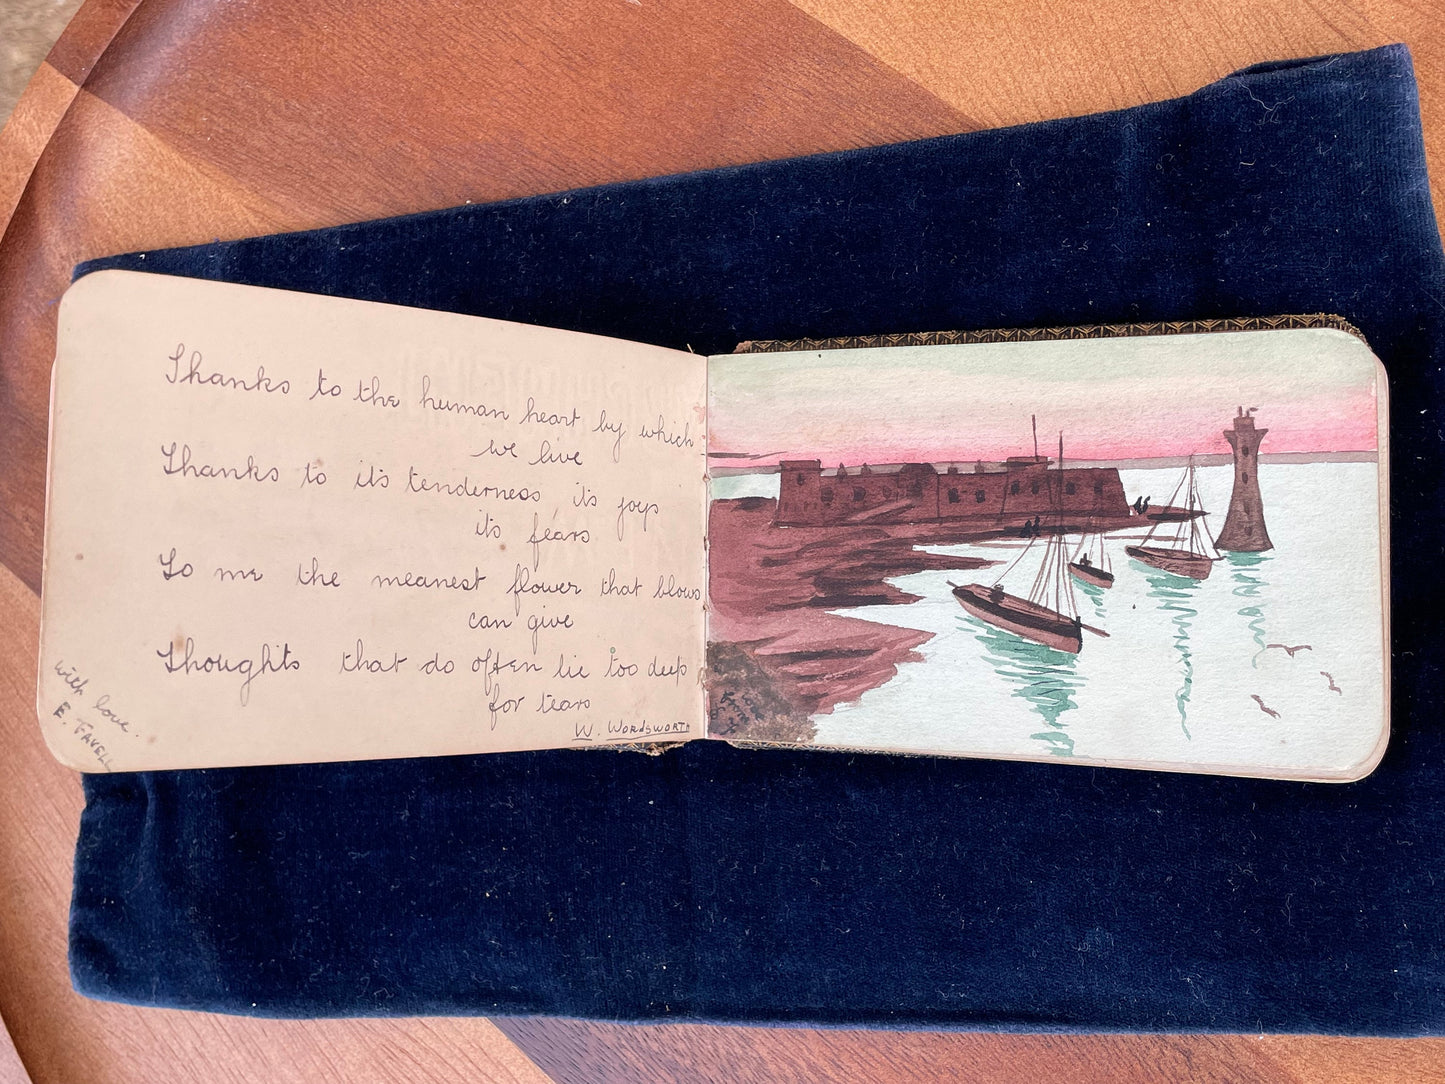 Thanks to the human heart by which
we live
Thanks to it's tenderness it's joys
it's fears
To me the meanest flower that blows
can give
Thoughts that do often lie too deep
for tears
W. WORDSWORTH
with love.
E. FAVELL
love
from